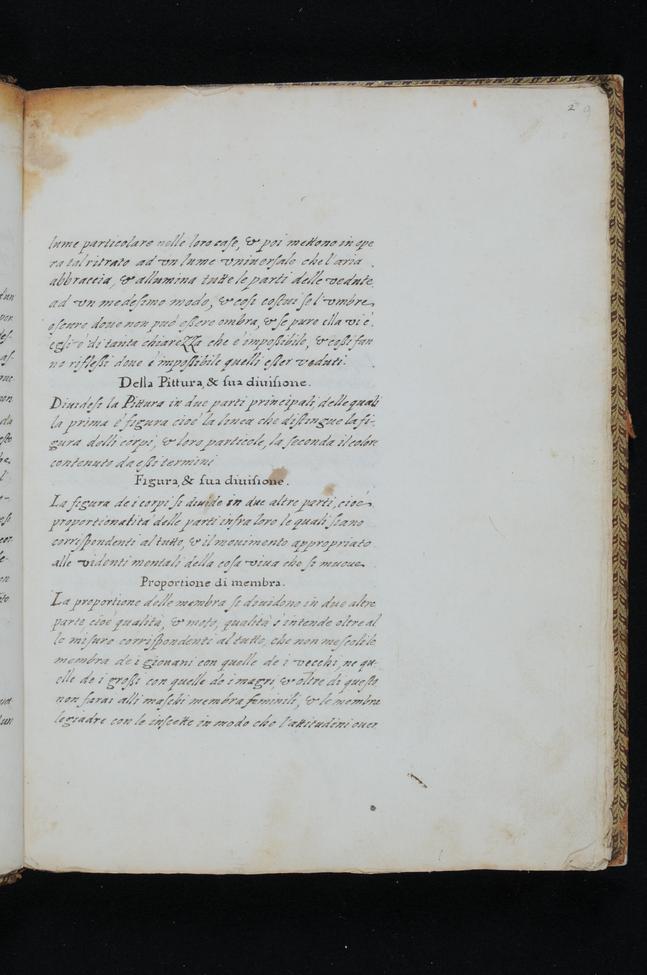 29
lume particolare nelle loro case, & poi mettono in ope
ra tal ritrato ad vn lume vniuersale che l'aria
abbraccia, & allumina tutte le parti delle vedute
ad vn medesimo modo, & cosi costui fa l'vmbre
oscure doue non può essere ombra, & se pure ella vi è
egli è di tanta chiarezza che è impossibile, & così fan
no riflessi doue è impossibile quelli esser veduti.
Della Pittura, & sua diuisione.
Diuidesi la Pittura in due parti principali, delle quali
la prima è figura cioè la linea che distingue la fi-
gura delli corpi, & loro particole, la seconda il colore
contenuto da essi termini
Figura, & sua diuisione.
La figura de i corpi si diuide in due altre parti, cioè
proportionalità delle parti infra loro le quali siano
corrispondenti al tutto, & il mouimento appropriato
alle videnti mentali della cosa viua che si muoue.
Proportione di membra.
La proportione delle membra si diuidono in due altre
parte, cioè qualità, & moto, qualità s'intende oltre al
le misure corrispondenti al tutto, che non mescoli le
membra de i giouani con quelle de i vecchi, ne qu-
elle de i grossi con quelle de i magri, & oltre di questo
non farai alli maschi membra feminili, & le membra
legiadre con le inscette in modo che l'attitudini ouer